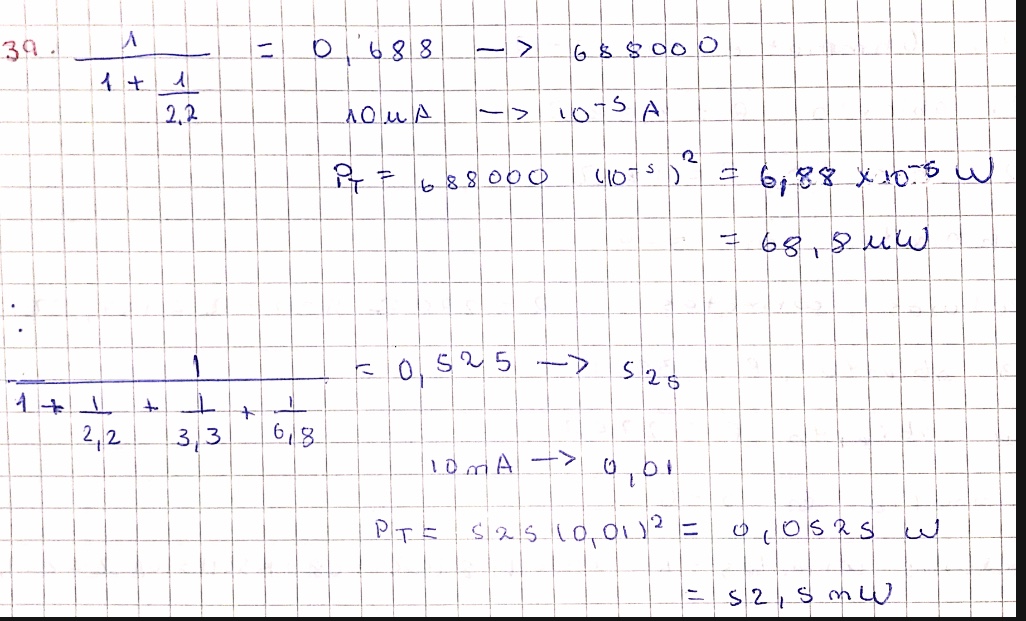 39. 1 / (1 + 1/2,2) = 0,688 —> 688000
10 uA —> 10⁻⁵ A
P_T = 688000 (10⁻⁵)² = 6,88 x 10⁻⁵ W
= 68,8 uW
:
1 / (1 + 1/2,2 + 1/3,3 + 1/6,8) = 0,525 —> 525
10 mA —> 0,01
P_T = 525 (0,01)² = 0,0525 W
= 52,5 mW